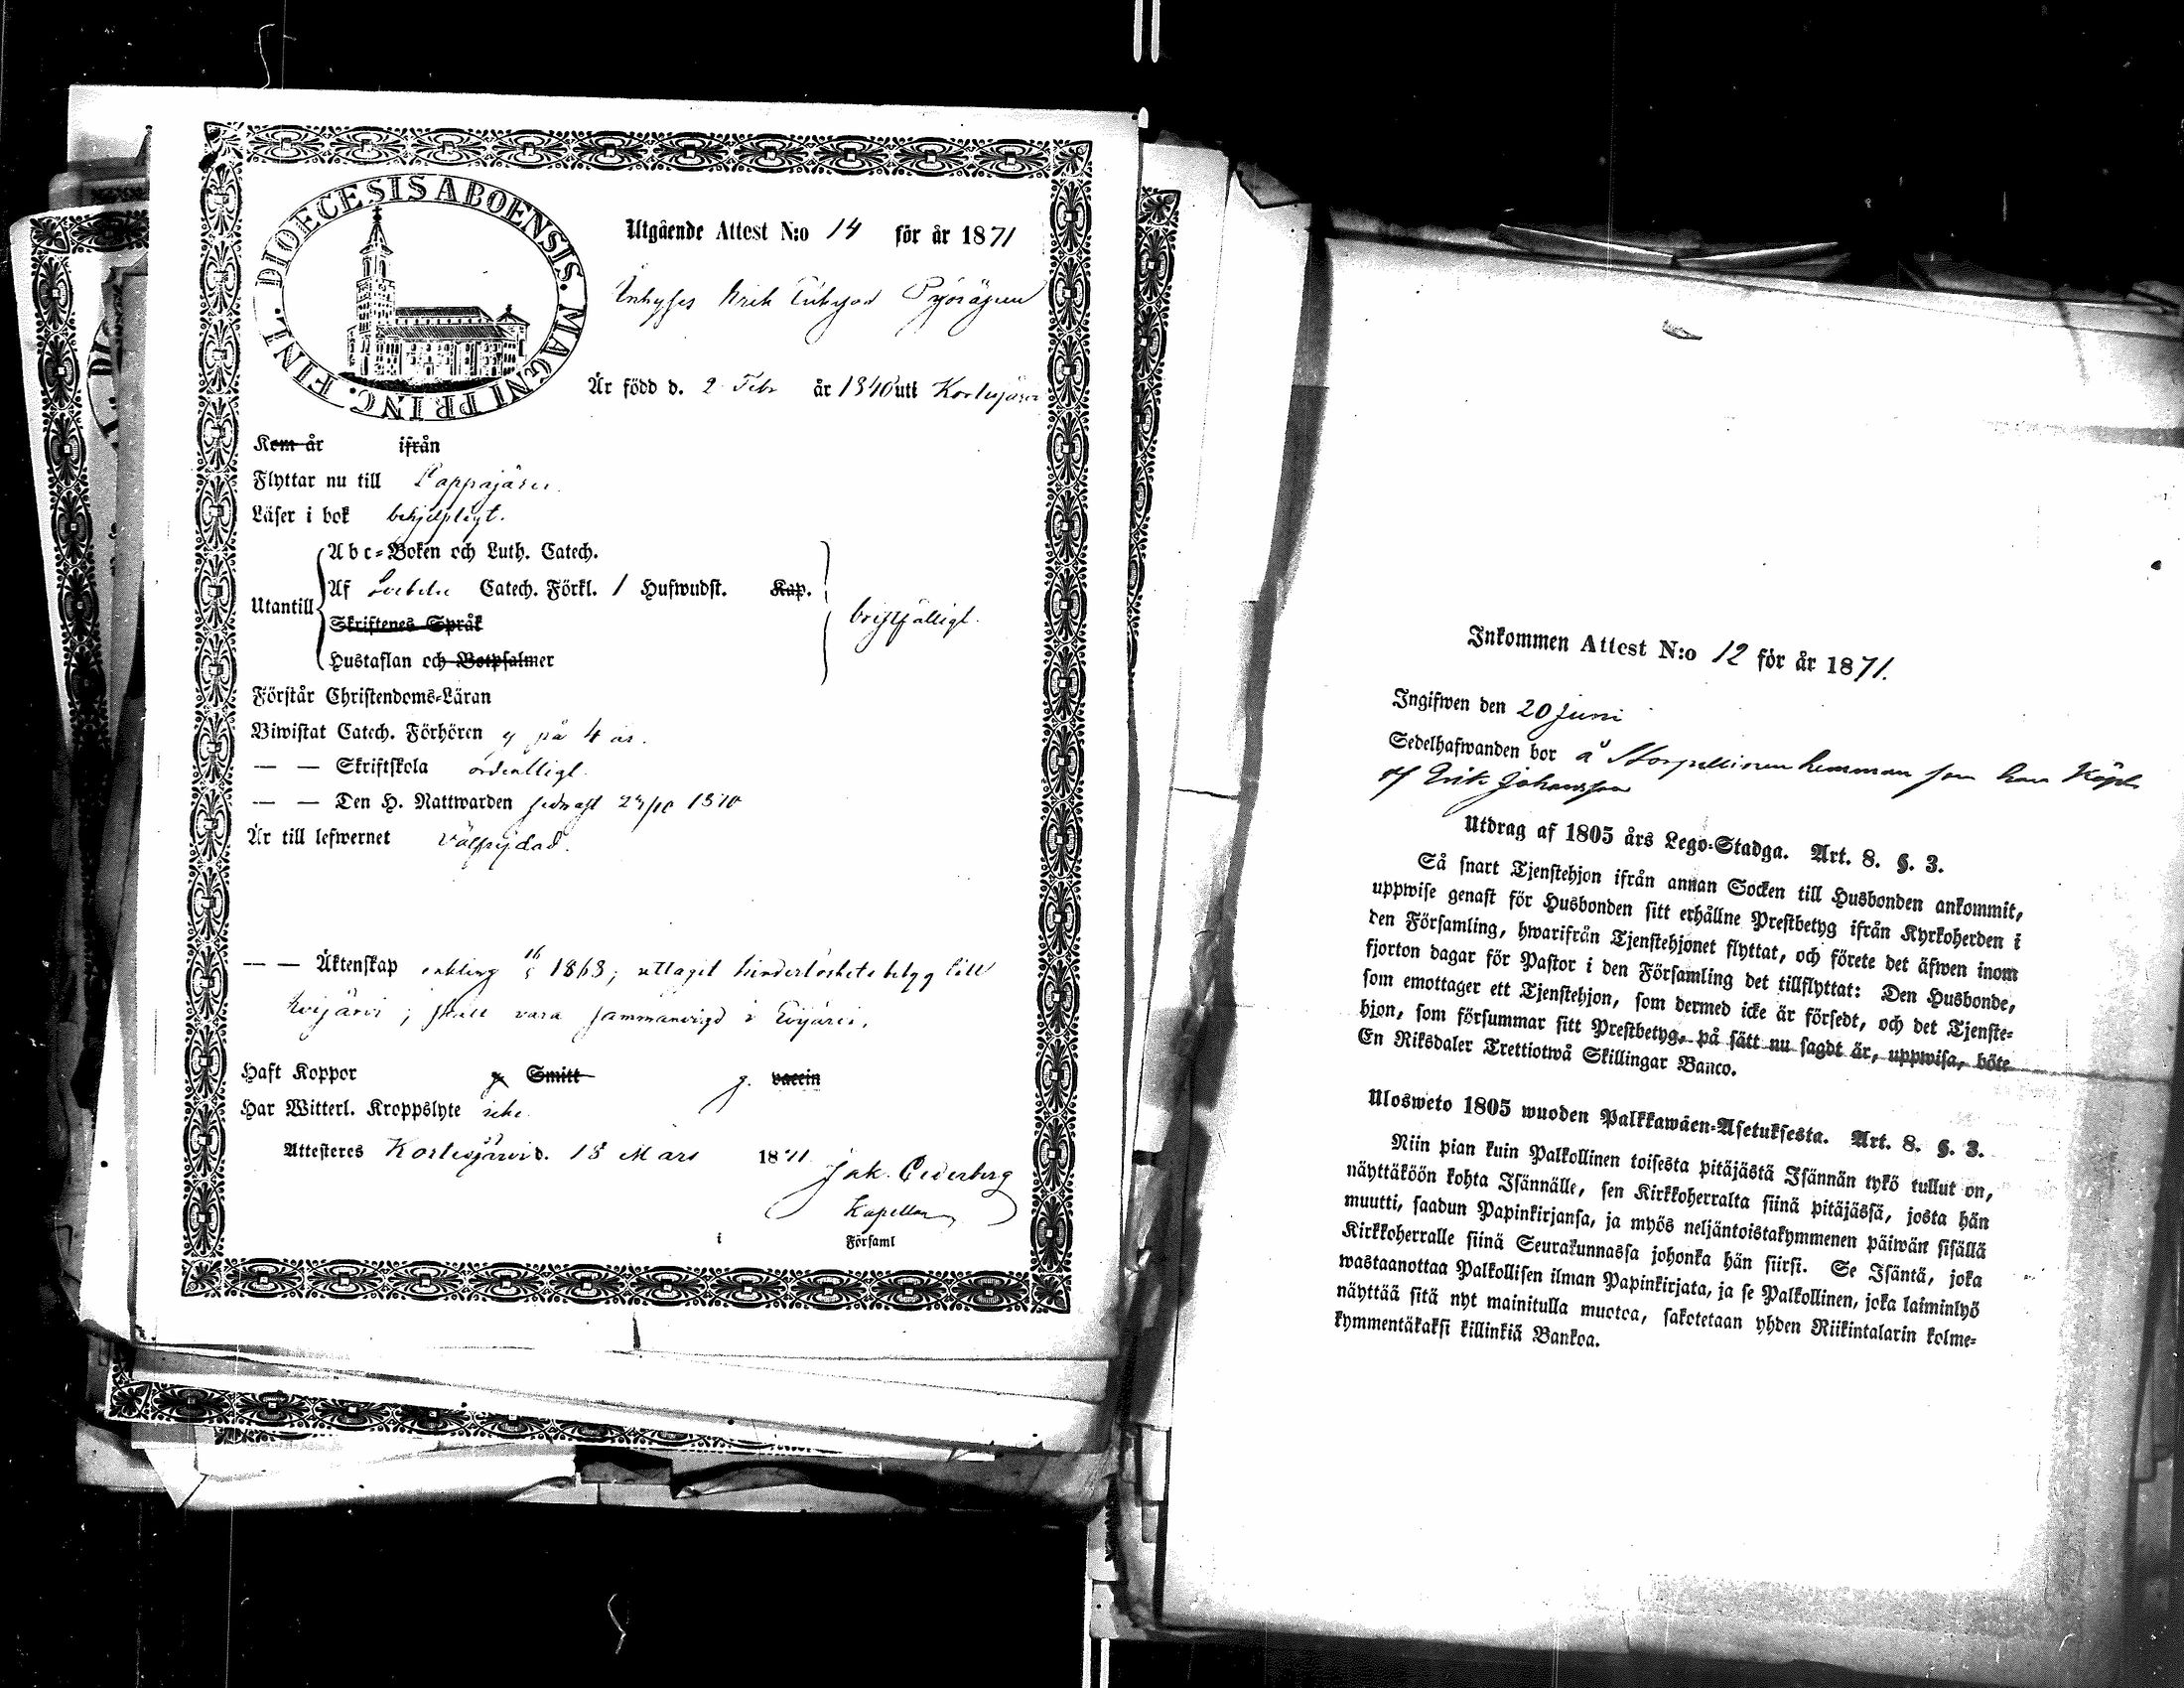 DIOECESIS ABOENSIS. MAGNI PRINC. FINL.
Utgående Attest N:o 14 för år 1871
Inhyses Erik Eriksson
Är född d. 2 Febr år 1840 uti Kortesjärvi
Kom år ifrån
Flyttar nu till Lappajärvi
Läser i bok behjelpligt.
Utantill
Abc-Boken och Luth. Catech.
Af Svebelii Catech. Förkl. 1 Hufwudst. Kap.
Skriftenes Språk
Hustaflan och Botpsalmer
bristfälligt.
Förstår Christendoms-Läran
Biwistat Catech. Förhören ej på 4 år.
— — Skriftskola ordentligt.
— — Den H. Nattwarden sednast 23/10 1870
Är till lefwernet välfrejdad.
— — Äktenskap enkling 16/5 1868; uttagit hinderlöshets betyg till
Evijärvi; skall vara sammanvigd i Evijärvi.
Haft Koppor Smitt j. vaccin
Har Witterl. Kroppslyte icke
Attesteres Kortesjärvi d. 18 Mars 1871
Jak. Cederberg
Kapellan
i Församl
Inkommen Attest N:o 12 för år 1871.
Ingifwen den 20 Juni
Sedelhafwanden bor å hemman som han köpt
af Erik Johansson
Utdrag af 1805 års Lego-Stadga. Art. 8. §. 3.
Så snart Tjenstehjon ifrån annan Socken till Husbonden ankommit,
uppwise genast för Husbonden sitt erhållne Prestbetyg ifrån Kyrkoherden i
den Församling, hwarifrån Tjenstehjonet flyttat, och förete det äfwen inom
fjorton dagar för Pastor i den Församling det tillflyttat: Den Husbonde,
som emottager ett Tjenstehjon, som dermed icke är försedt, och det Tjenste-
hjon, som försummar sitt Prestbetyg, på sätt nu sagdt är, uppwisa, böte
En Riksdaler Trettiotwå Skillingar Banco.
Ulosweto 1805 wuoden Palkkawäen-Asetuksesta. Art. 8. §. 3.
Niin pian kuin Palkollinen toisesta pitäjästä Isännän tykö tullut on,
näyttäköön kohta Isännälle, sen Kirkkoherralta siinä pitäjässä, josta hän
muutti, saadun Papinkirjansa, ja myös neljäntoistakymmenen päiwän sisällä
Kirkkoherralle siinä Seurakunnassa johonka hän siirsi. Se Isäntä, joka
wastaanottaa Palkollisen ilman Papinkirjata, ja se Palkollinen, joka laiminlyö
näyttää sitä nyt mainitulla muotoa, sakotetaan yhden Riikintalarin kolme-
kymmentäkaksi killinkiä Bankoa.